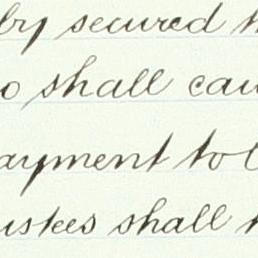 by secured
o shall cau
ayment to
ustees shall